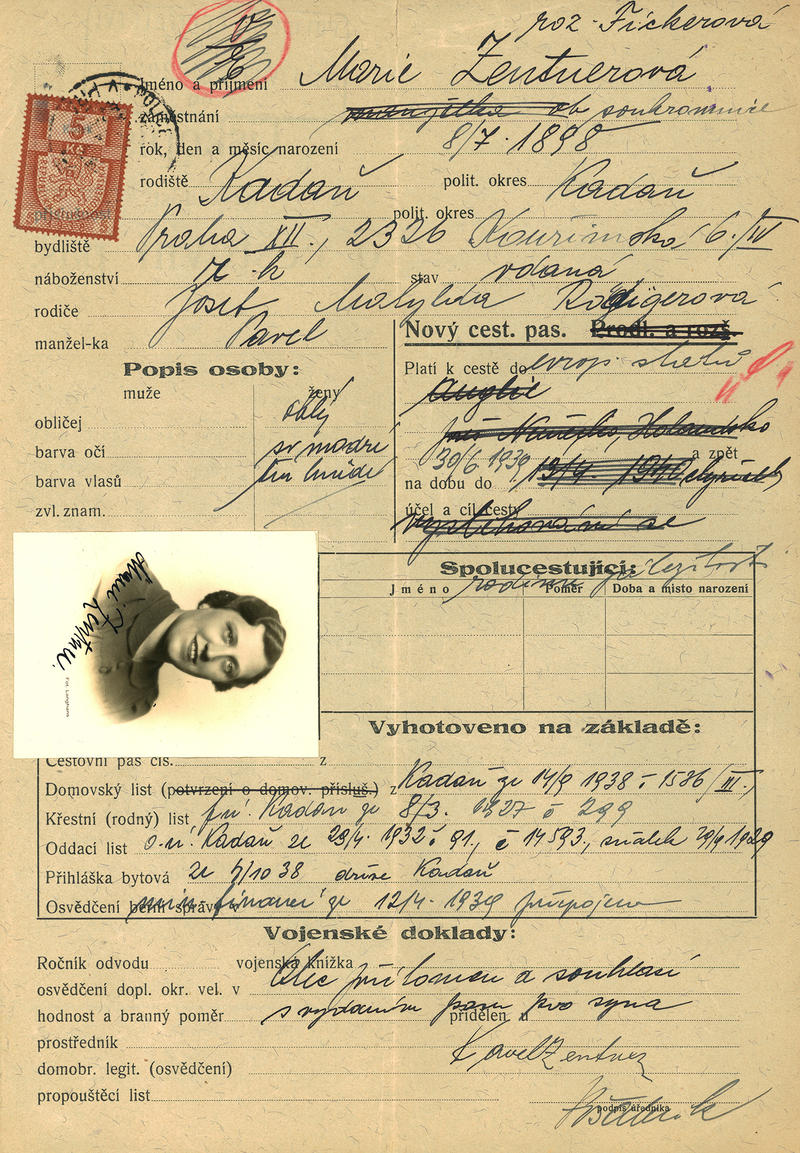 roz. Fickerová
Jméno a příjmení Marie Zentnerová
zaměstnání soukromnice
rok, den a měsíc narození 8/7. 1898
rodiště Kadaň polit. okres Kadaň
polit. okres
bydliště Praha XII., 2326 Kouřimská 6./IV
náboženství ř.-k stav vdaná
rodiče Josef Matylda Rödigerová
manžel-ka Pavel
Nový cest. pas. Prodl. a rozš.
Popis osoby:
muže ženy
obličej oblý
barva očí sv modré
barva vlasů tm hnědé
zvl. znam.
Platí k cestě do evrop. států
Anglie
Německo, Holandsko
a zpět
na dobu do 30/6 1939 13/4. 1940
účel a cíl cesty
vystěhování se
Spolucestující:
Jméno Poměr Doba a místo narození
Marie Zentner.
Fot. Langhans
Vyhotoveno na základě:
Cestovní pas čís. z
Domovský list (potvrzení o domov. přísluš.) z Kadaň ze 14/9 1938 č 1586/III.
Křestní (rodný) list f. ú. Kadaň ze 8/3. 1927 č 299
Oddací list o. ú. Kadaň ze 29/4. 1932 č 91., č 14593., sňatek 29/9 1929
Přihláška bytová ze 7/10 38 dříve Kadaň
Osvědčení berní správy v min. financí ze 12/4. 1939 připojeno
Vojenské doklady:
Ročník odvodu vojenská knížka
Otec přítomen a souhlasí
osvědčení dopl. okr. vel. v
s vydáním pasu pro syna
hodnost a branný poměr přidělen u
prostředník
Pavel Zentner
domobr. legit. (osvědčení)
propouštěcí list
podpis úředníka